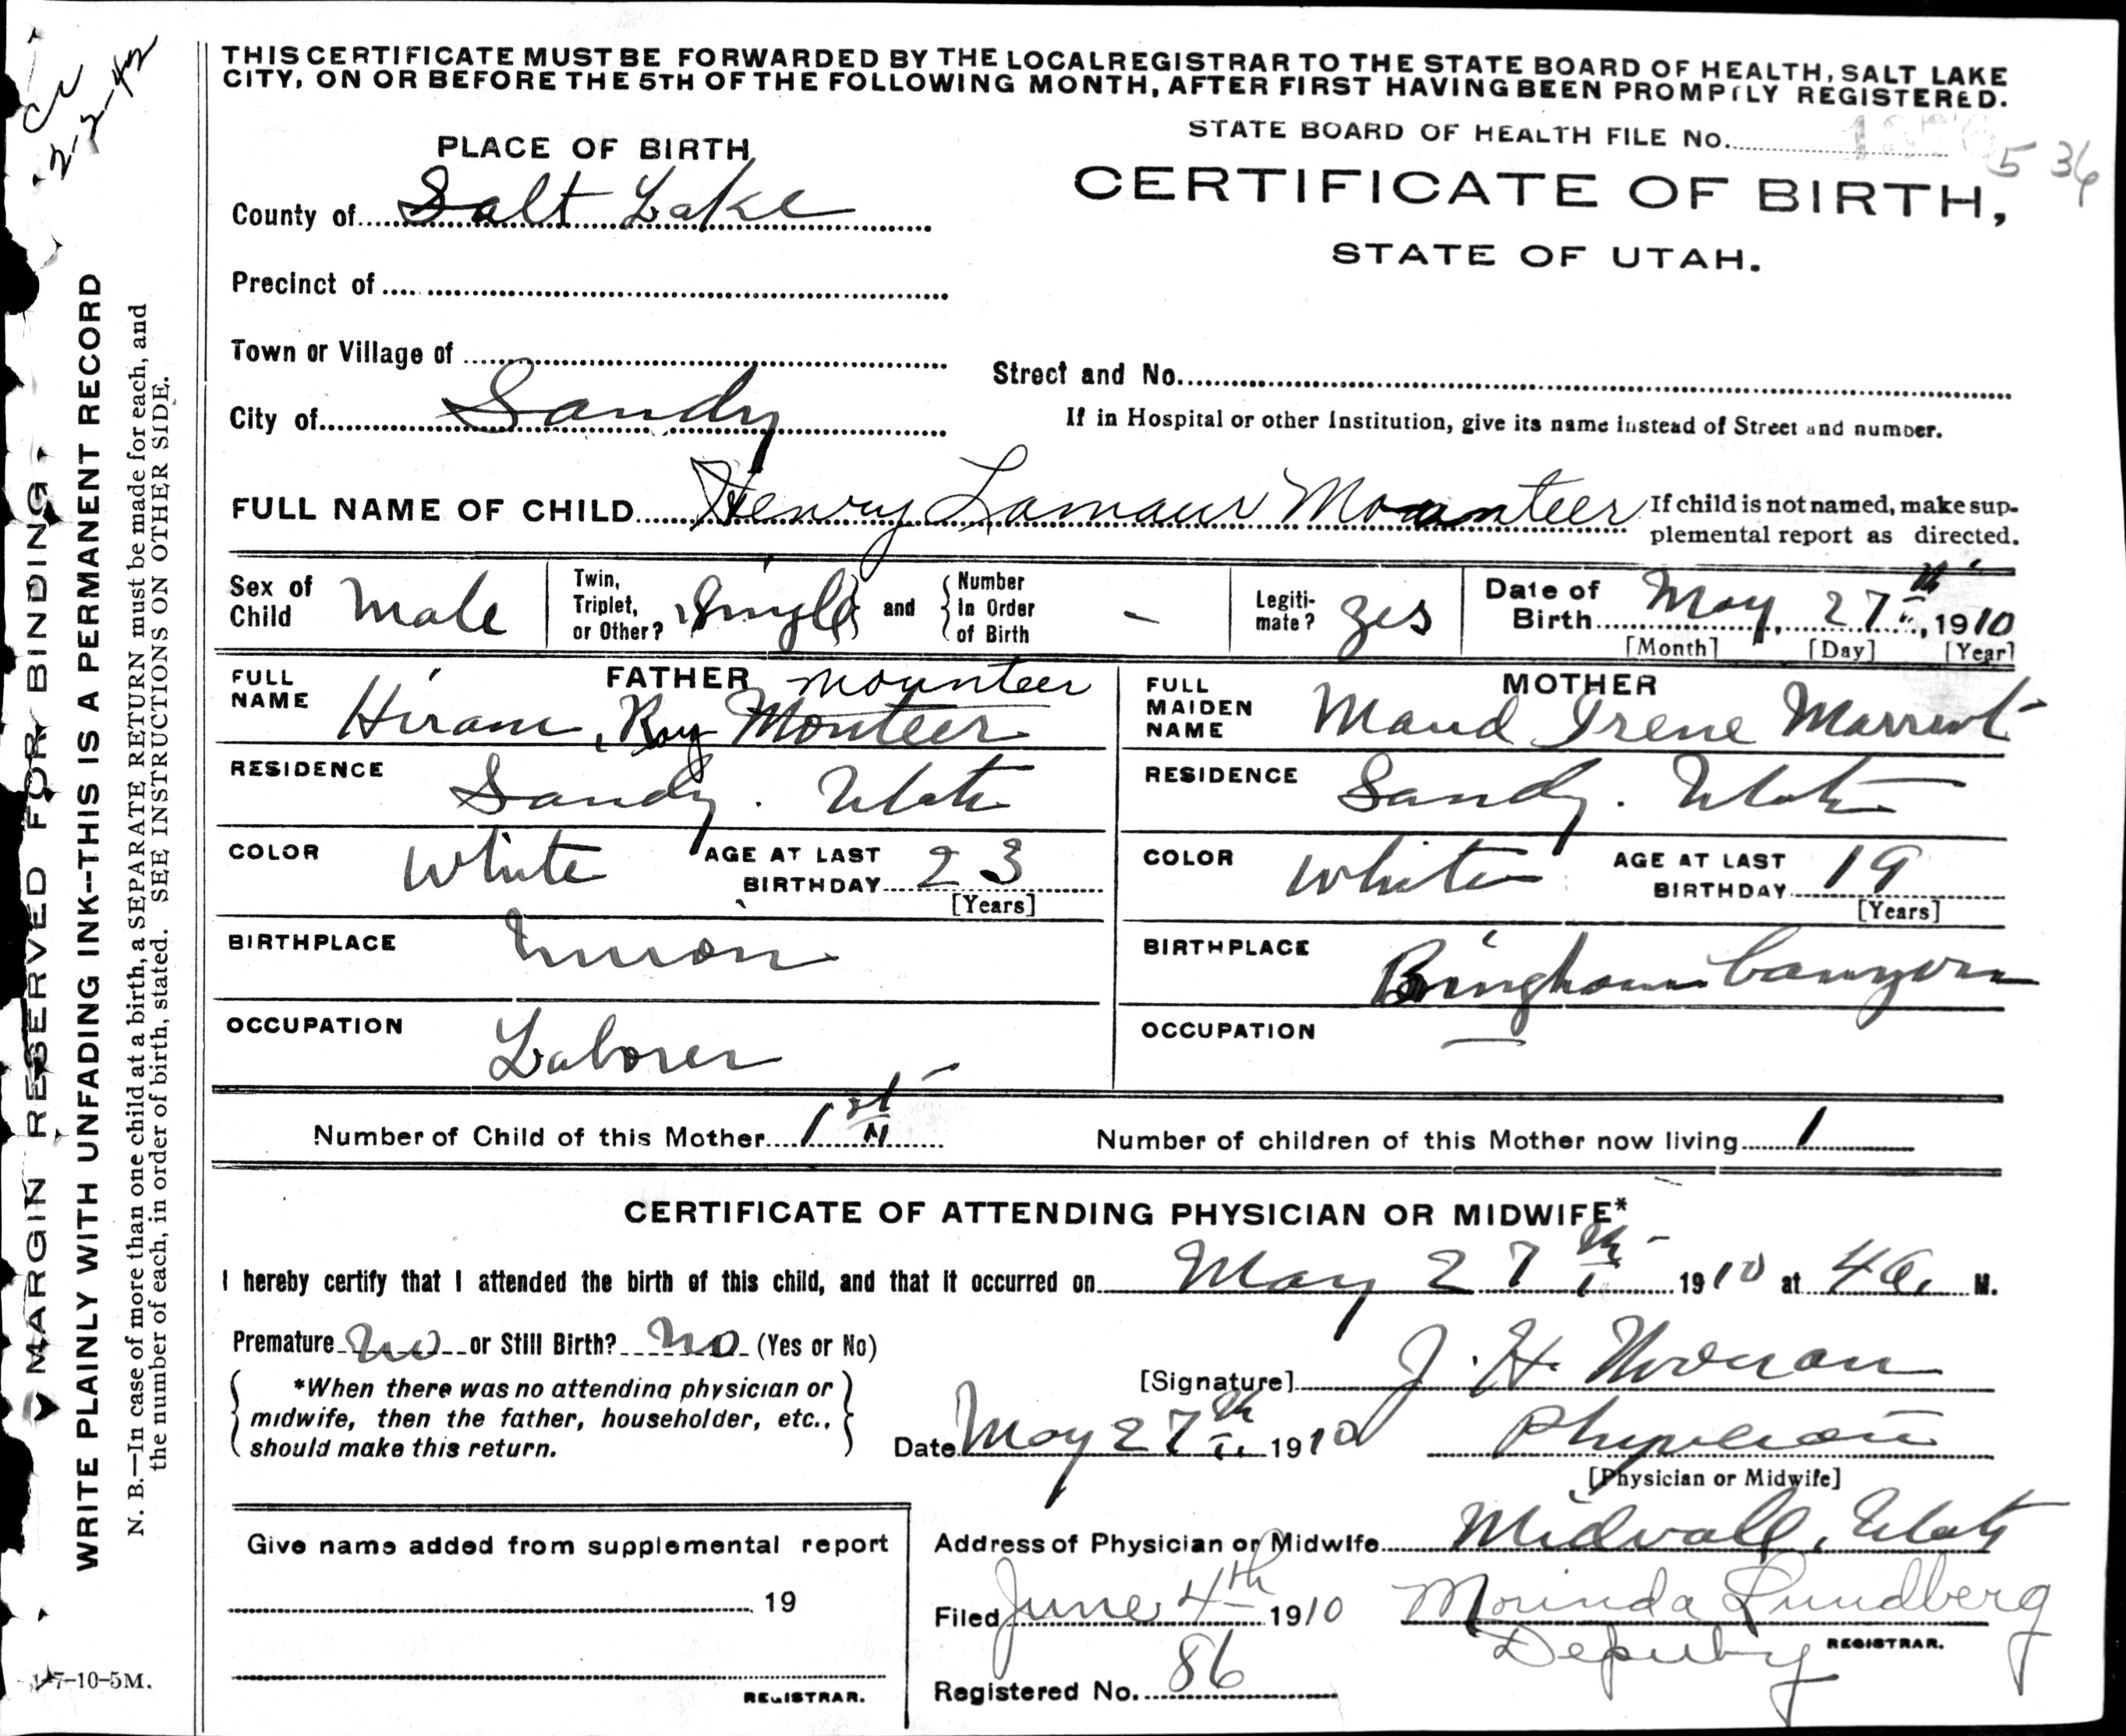 cc
2-2-42
MARGIN RESERVED FOR BINDING.
WRITE PLAINLY WITH UNFADING INK--THIS IS A PERMANENT RECORD
N. B.—In case of more than one child at a birth, a SEPARATE RETURN must be made for each, and
the number of each, in order of birth, stated. SEE INSTRUCTIONS ON OTHER SIDE.
7-10-5M.
THIS CERTIFICATE MUST BE FORWARDED BY THE LOCAL REGISTRAR TO THE STATE BOARD OF HEALTH, SALT LAKE
CITY, ON OR BEFORE THE 5TH OF THE FOLLOWING MONTH, AFTER FIRST HAVING BEEN PROMPTLY REGISTERED.
STATE BOARD OF HEALTH FILE No. 536
PLACE OF BIRTH
CERTIFICATE OF BIRTH,
STATE OF UTAH.
County of Salt Lake
Precinct of
Town or Village of
Street and No.
City of Sandy
If in Hospital or other Institution, give its name instead of Street and number.
FULL NAME OF CHILD Henry Lamaur Mounteer If child is not named, make sup-
plemental report as directed.
Sex of Child Male Twin, Triplet, or Other? Single and Number In Order of Birth - Legiti-mate? Yes Date of Birth May, 27th, 1910
[Month] [Day] [Year]
FATHER Mounteer
FULL NAME Hiram, Roy Monteer
MOTHER
FULL MAIDEN NAME Maud Irene Marriott
RESIDENCE Sandy. Utah
RESIDENCE Sandy. Utah
COLOR White AGE AT LAST BIRTHDAY 23 [Years]
COLOR White AGE AT LAST BIRTHDAY 19 [Years]
BIRTHPLACE Union
BIRTHPLACE Bingham Canyon
OCCUPATION Laborer
OCCUPATION —
Number of Child of this Mother 1st
Number of children of this Mother now living 1
CERTIFICATE OF ATTENDING PHYSICIAN OR MIDWIFE*
I hereby certify that I attended the birth of this child, and that it occurred on May 27th 1910 at 4 a. M.
Premature No or Still Birth? No (Yes or No)
*When there was no attending physician or
midwife, then the father, householder, etc.,
should make this return.
[Signature] J. H.
Date May 27th 1910 Physician
[Physician or Midwife]
Give name added from supplemental report
19
REGISTRAR.
Address of Physician or Midwife Midvale, Utah
Filed June 4th 1910 Morinda Lundberg
Deputy REGISTRAR.
Registered No. 86